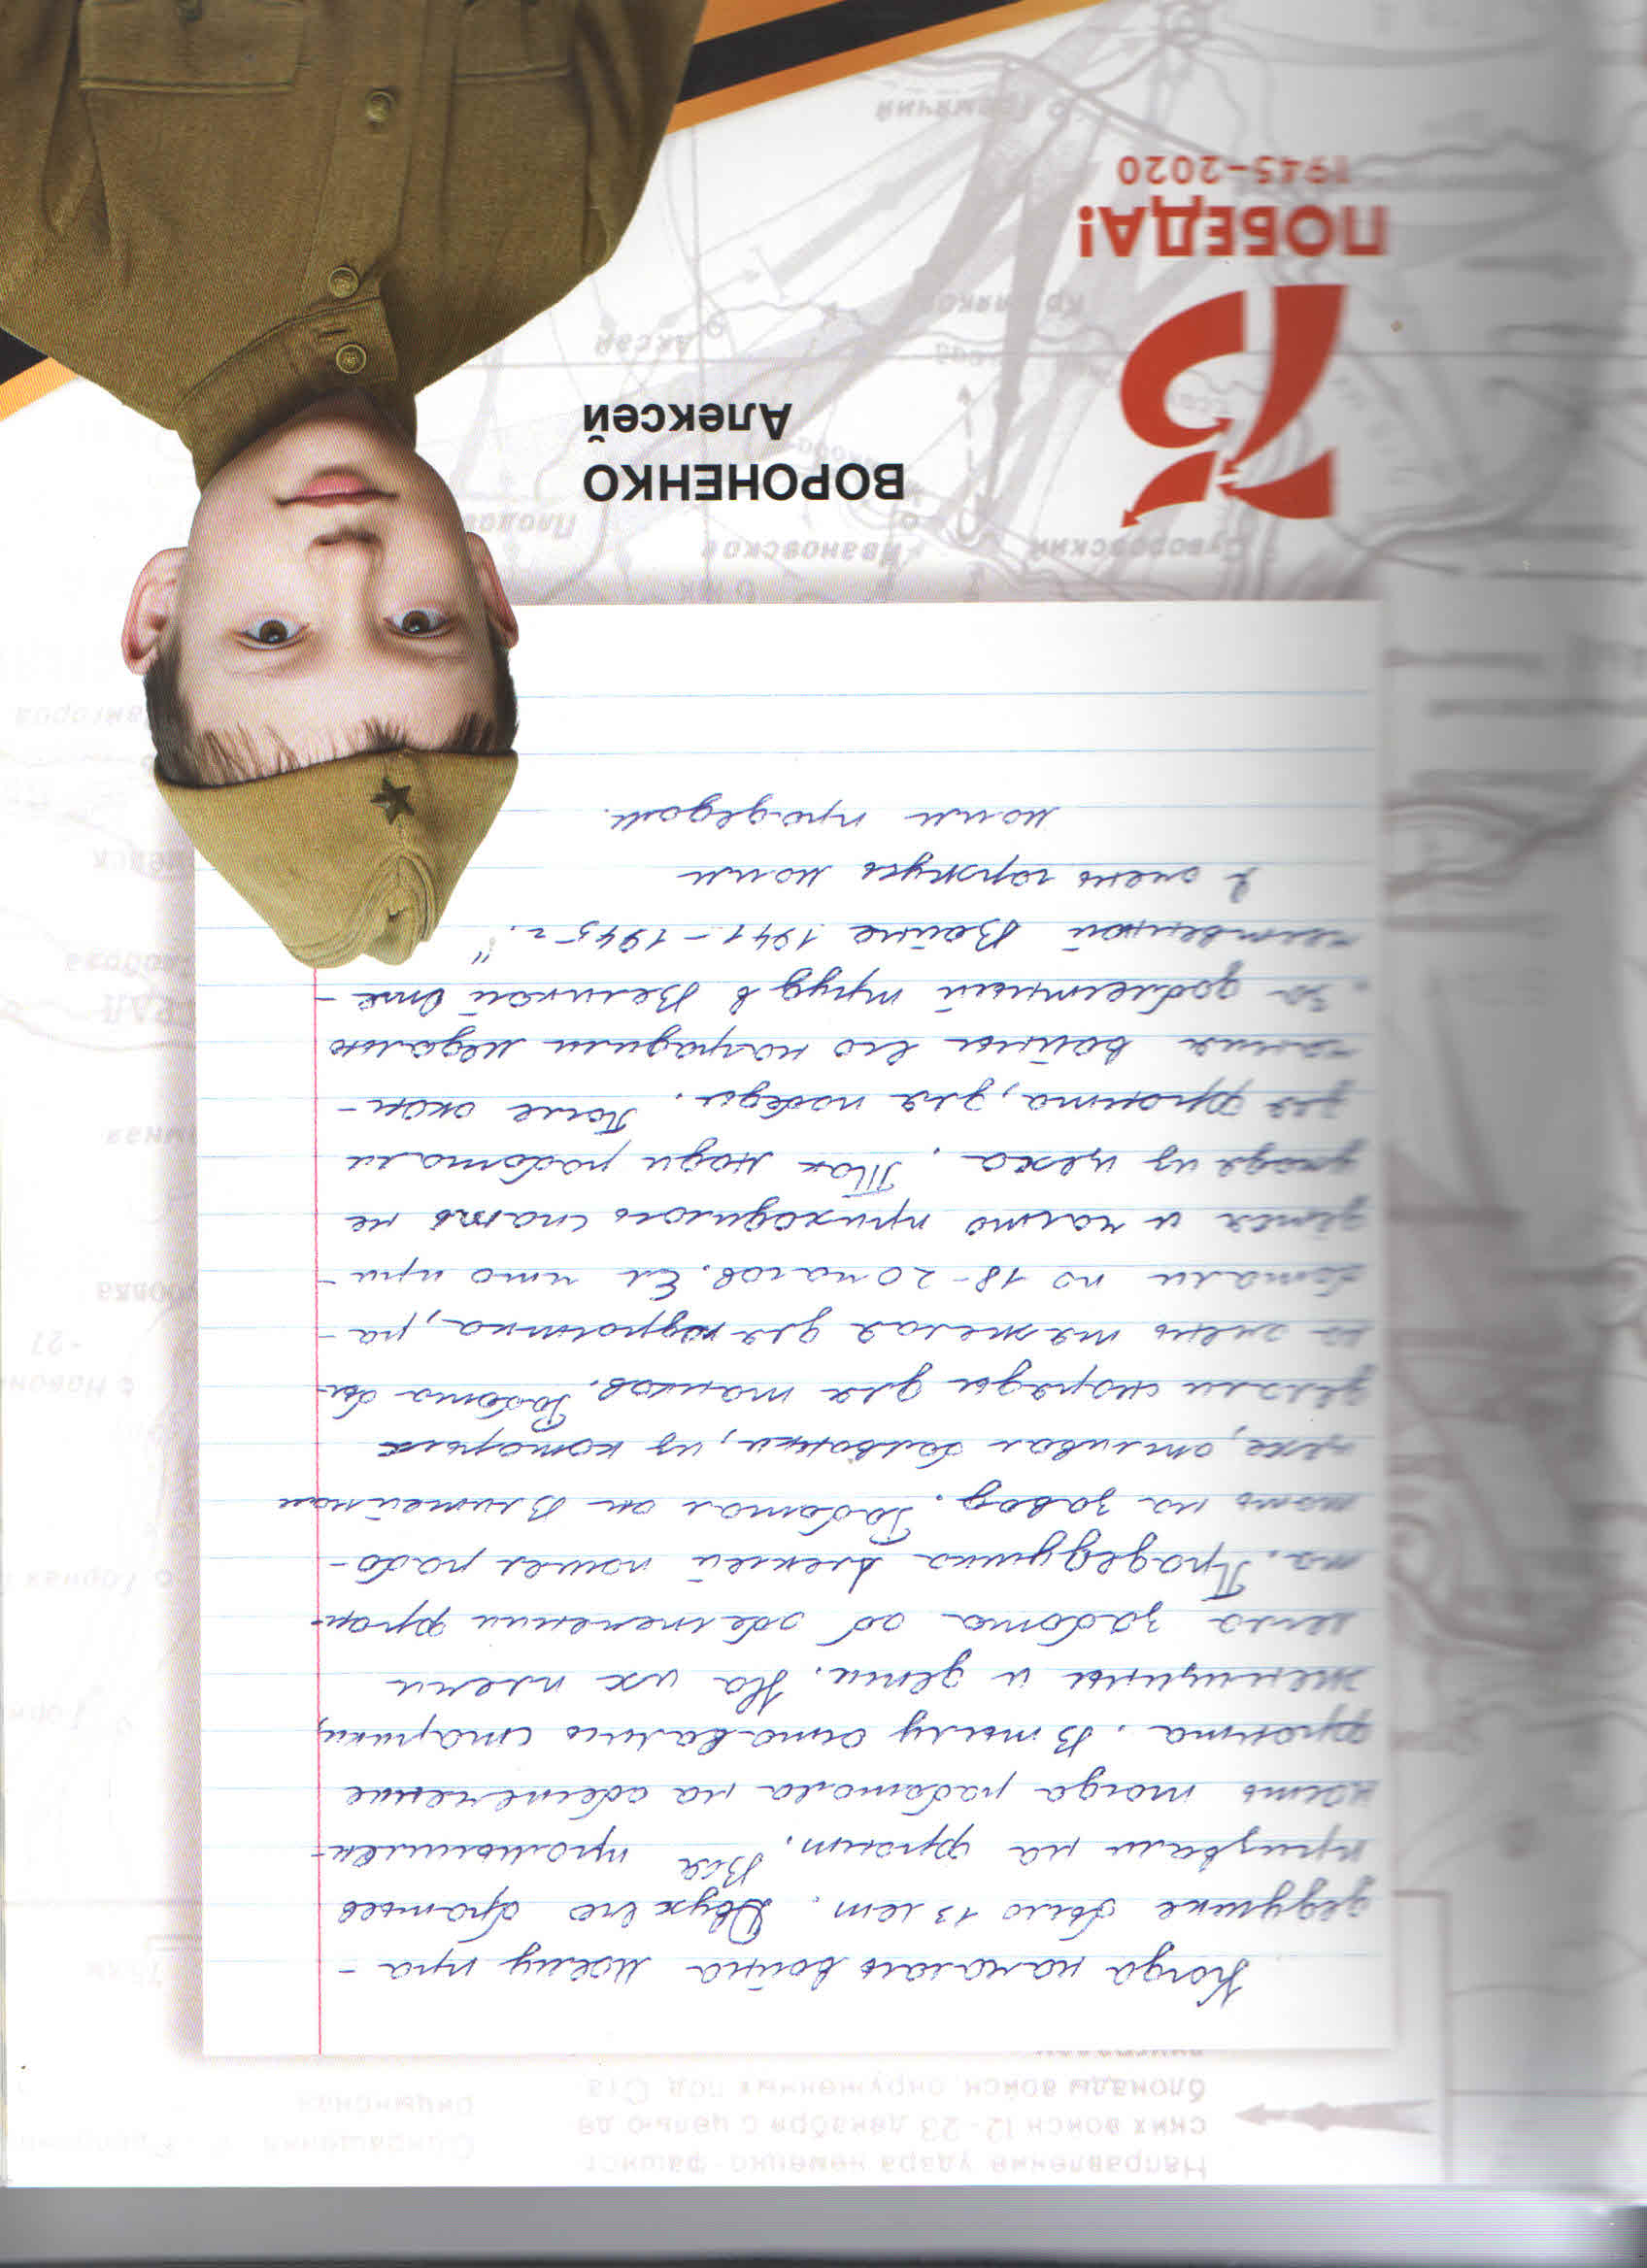 Направление удара немецко-фашист-
ских войск 12-23 декабря с целью де
блокады войск, окруженных под Ста
Когда началась война моему пра-
дедушке было 13 лет. Двух его братьев
призвали на фронт. Вся промышлен-
ность тогда работала на обеспечение
фронта. В тылу оставались старики,
женщины и дети. На их плечи
легла забота об обеспечении фрон-
та. Прадедушка Алексей пошел рабо-
тать на завод. Работал он в литейном
цехе, отливал болванки, из которых
делали снаряды для танков. Работа бы-
ла очень тяжелая для подростка, ра-
ботали по 18-20 часов. Ел что при-
дётся и часто приходилось спать не
уходя из цеха. Так люди работали
для фронта, для победы. После окон-
чания войны его наградили медалью
„За доблестный труд в Великой Оте-
чественной Войне 1941-1945 г."
Я очень горжусь моим
моим прадедом.
Суворовский
Ивановское
ВОРОНЕНКО
Алексей
Аксай
75
ПОБЕДА!
1945-2020